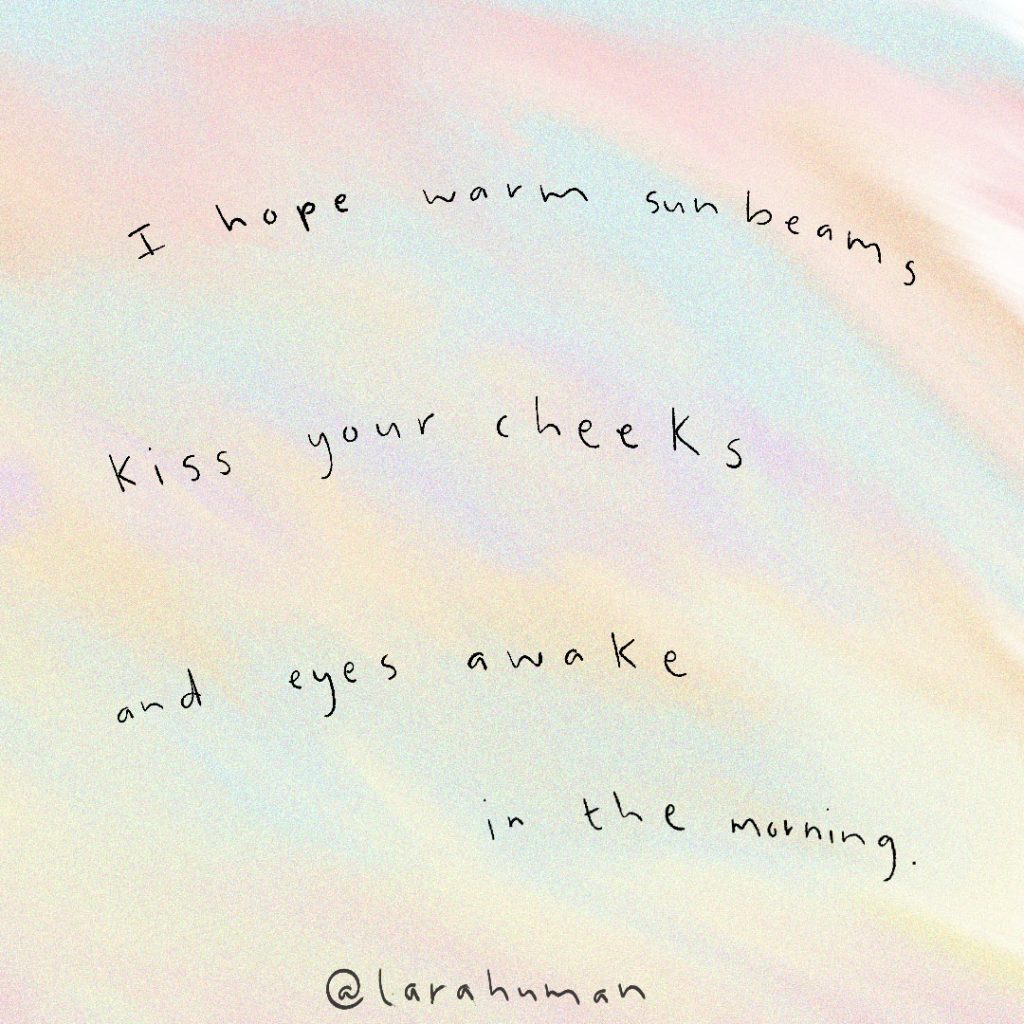 I hope warm sunbeams
kiss your cheeks
and eyes awake
in the morning.
@larahuman